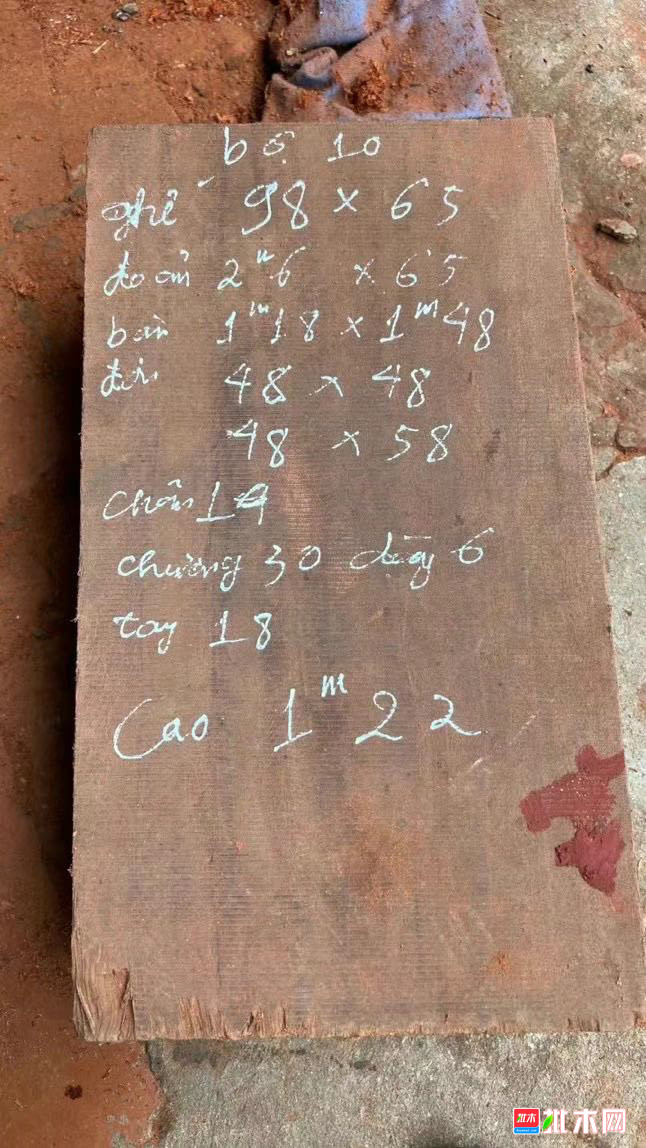 bộ 10
ghế 98 x 65
đoản 2m6 x 65
bàn 1m18 x 1m48
đôn 48 x 48
48 x 58
chân 14
chương 30 dầy 6
tay 18
Cao 1m22
批木 批木网